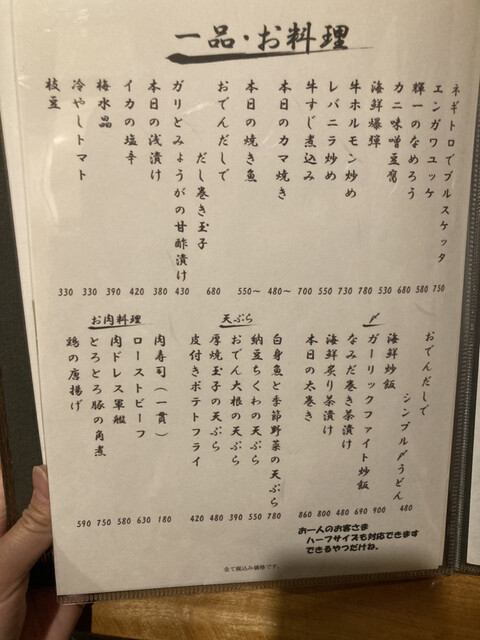 一品・お料理
ネギトロでブルスケッタ 750
エンガワユッケ 580
輝一のなめろう 680
カニ味噌豆腐 530
海鮮爆弾 780
牛ホルモン炒め 730
レバニラ炒め 550
牛すじ煮込み 700
本日のカマ焼き 480～
本日の焼き魚 550～
おでんだしで
だし巻き玉子 680
ガリとみょうがの甘酢漬け 430
本日の浅漬け 380
イカの塩辛 420
梅水晶 390
冷やしトマト 330
枝豆 330
〆
おでんだしで
シンプル〆うどん 480
海鮮炒飯 900
ガーリックファイト炒飯 690
なみだ巻き茶漬け 480
海鮮炙り茶漬け 800
本日の太巻き 860
天ぷら
白身魚と季節野菜の天ぷら 780
納豆ちくわの天ぷら 550
おでん大根の天ぷら 390
厚焼玉子の天ぷら 480
皮付きポテトフライ 420
お肉料理
肉寿司（一貫） 180
ローストビーフ 630
肉ドレス軍艦 580
とろとろ豚の角煮 750
鶏の唐揚げ 590
お一人のお客さま
ハーフサイズも対応できます
できるやつだけね。
全て税込み価格です。